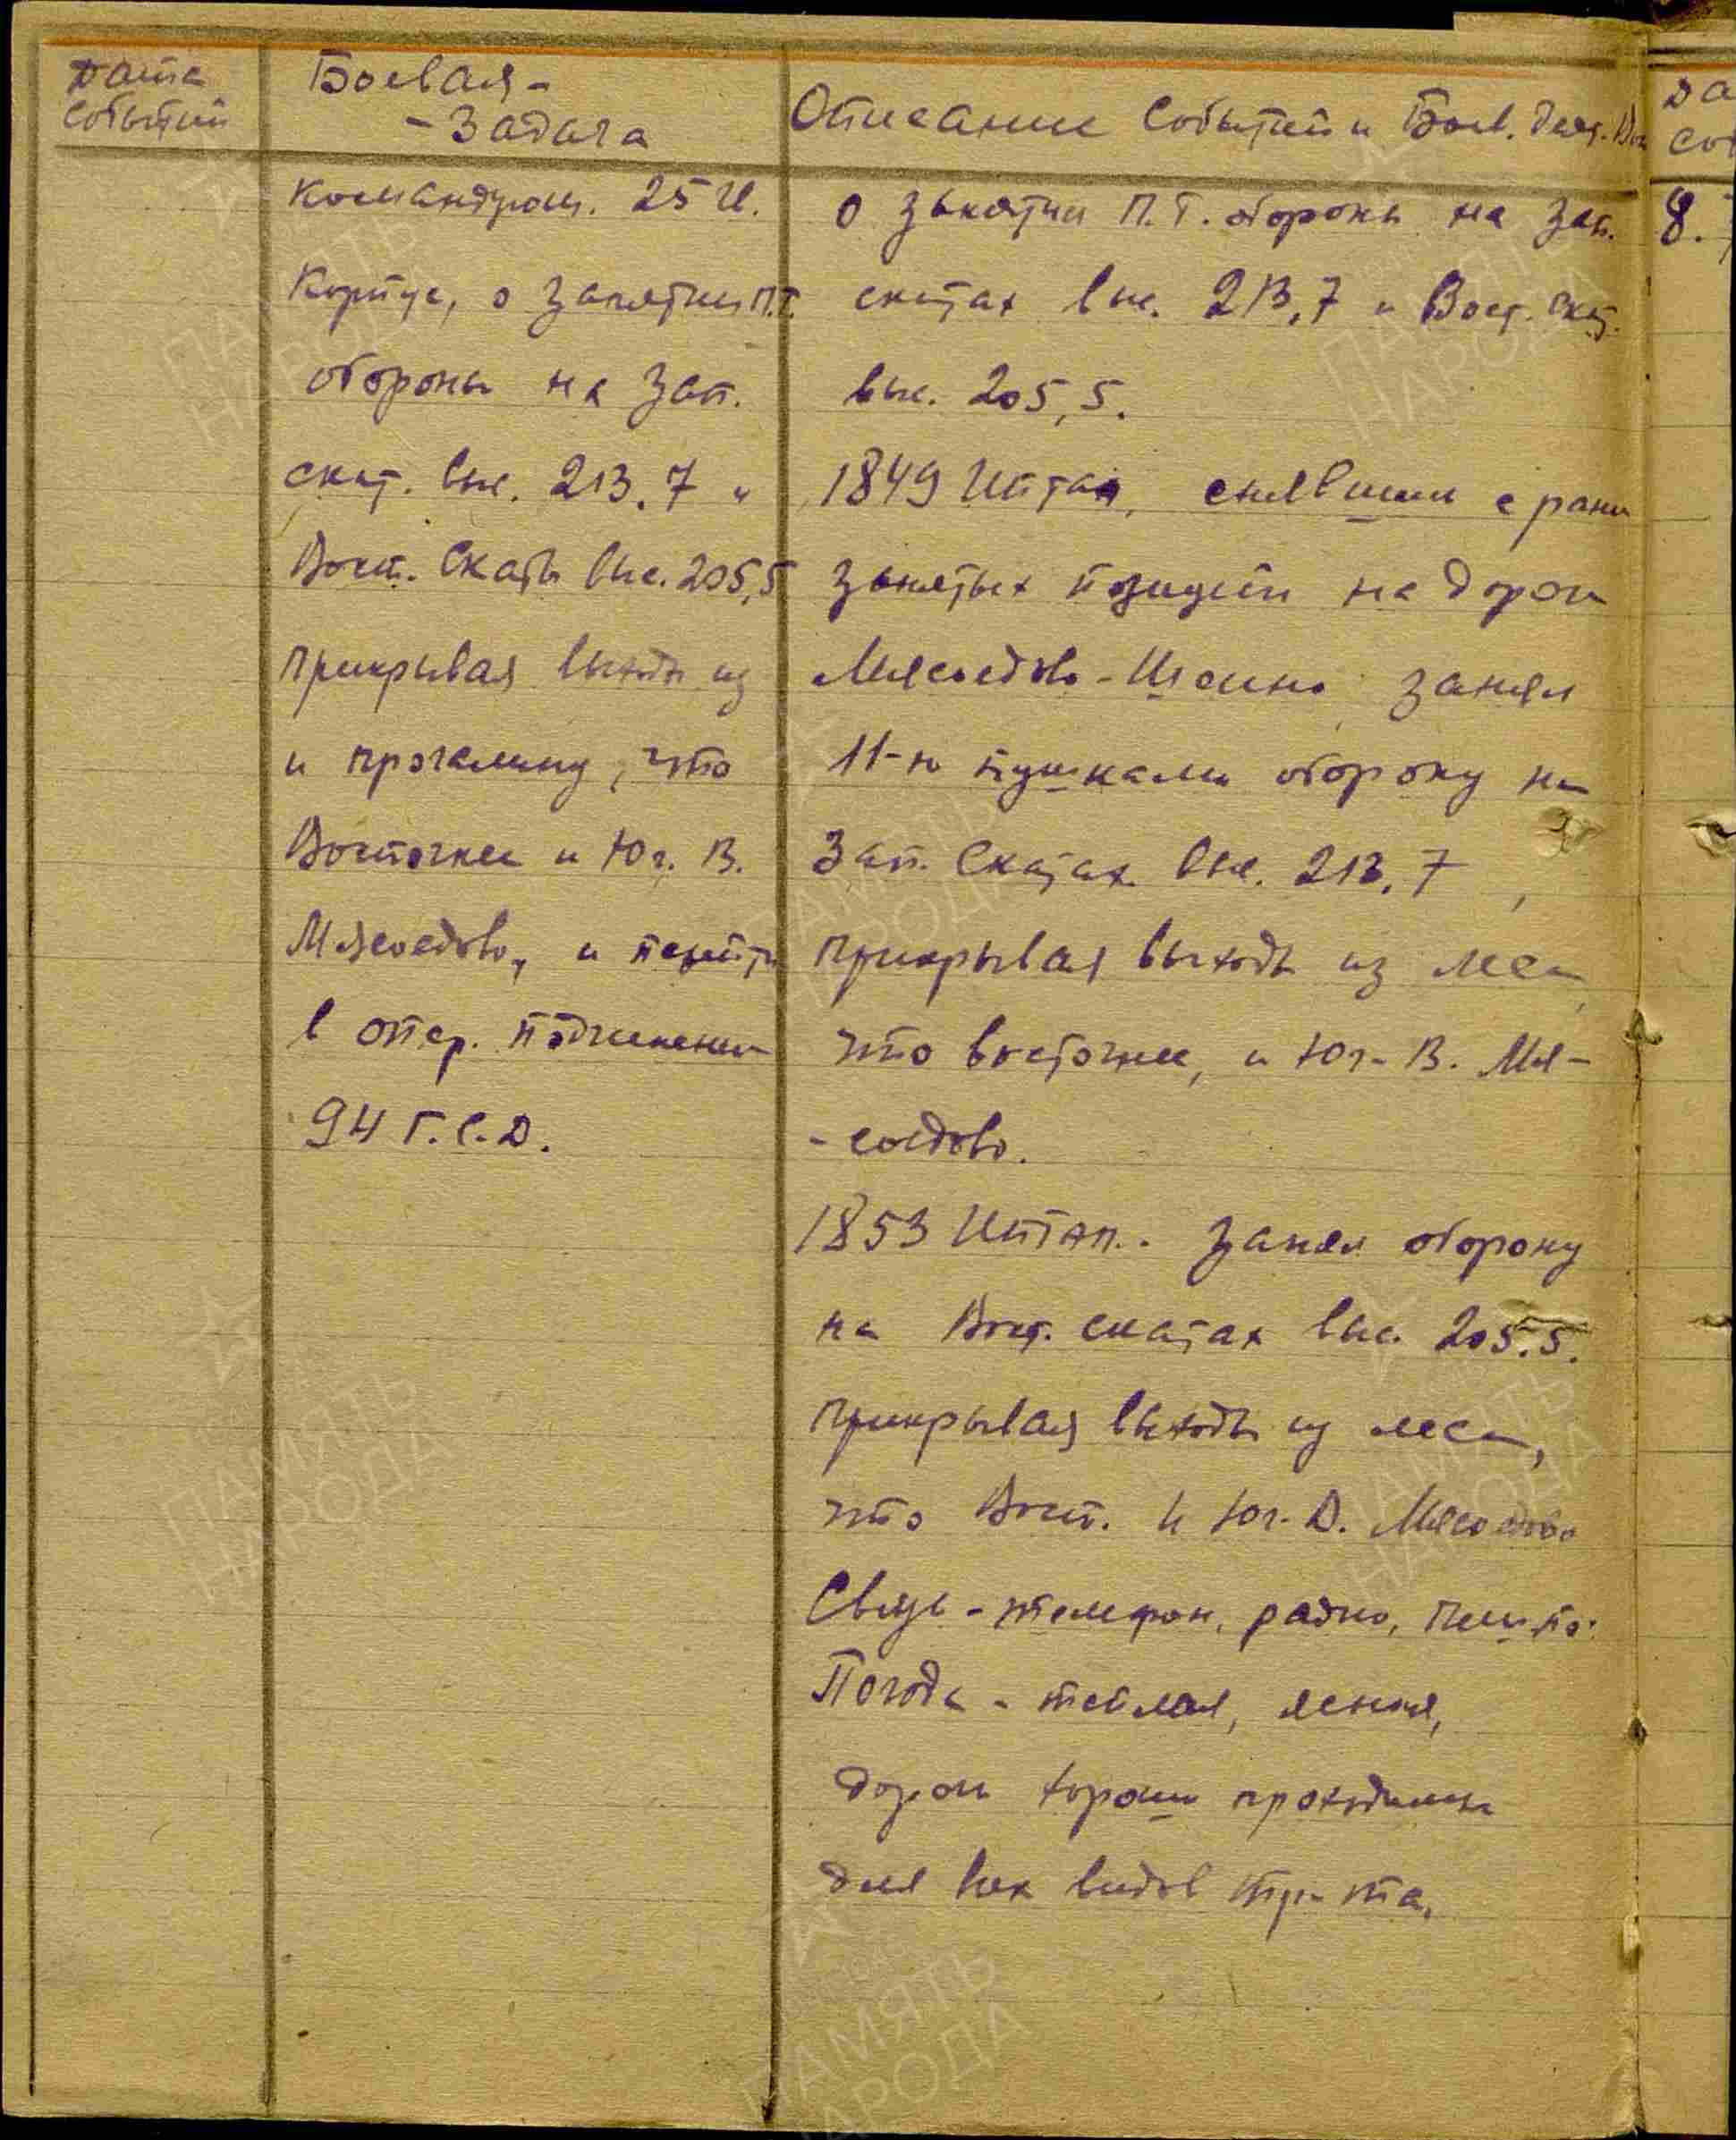 Дата
событий
Боевая-
-Задача
Описание Событий и Боев. деят.
командующ. 25 И.
Корпус, о занятии П.Т.
обороны на Зап.
скат. выс. 213.7 и
Вост. Скаты выс. 205,5
прикрывая выходы из
и прогалину, что
Восточнее и Юг. В.
Мясоедово, и перейти
в опер. подчинение
94 Г.С.Д.
о занятии П.Т. обороны на Зап.
скатах выс. 213,7 и Вост. скат.
выс. 205,5.
1849 Иптап, снявшись с ранее
занятых позиций на дороге
Мясоедово - Шеино, занял
11-ю пушками оборону на
Зап. Скатах выс. 213.7,
прикрывая выходы из леса,
что восточнее, и Юг-В. Мя-
-соедово.
1853 Иптап. занял оборону
на Вост. скатах выс. 205.5.
прикрывая выходы из леса,
что Вост. и Юг-В. Мясоедово
Связь - телефон, радио,
Погода - теплая, ясная,
дороги хорошо проходимы
для всех видов тр-та.
Да
соб
8.
ПАМЯТЬ
НАРОДА